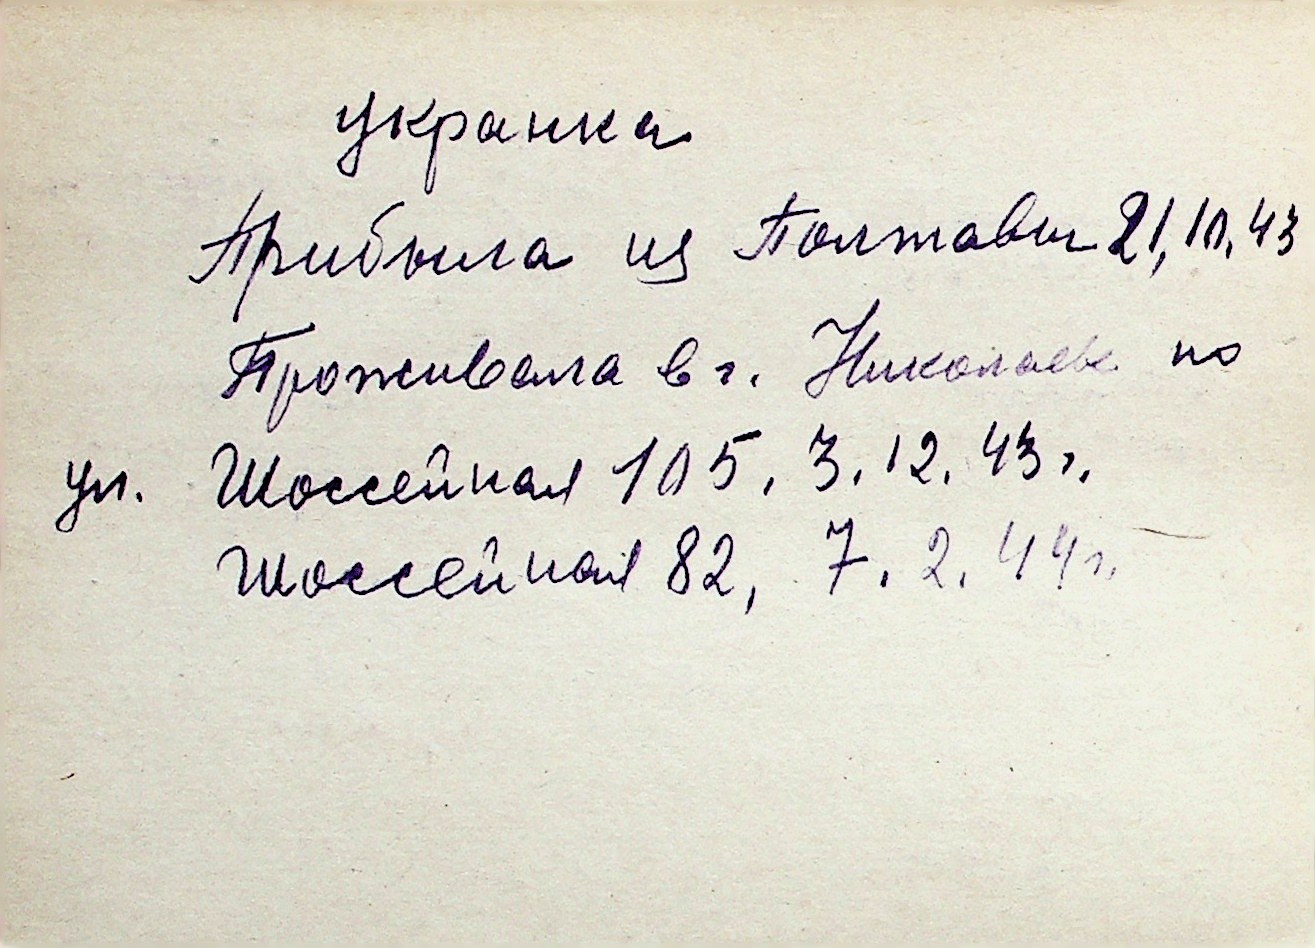 укранка
Прибыла из Полтавы 21,10.43
Проживала в г. Николаеве по
ул. Шоссейная 105, 3.12.43г.
Шоссейная 82, 7.2.44г.